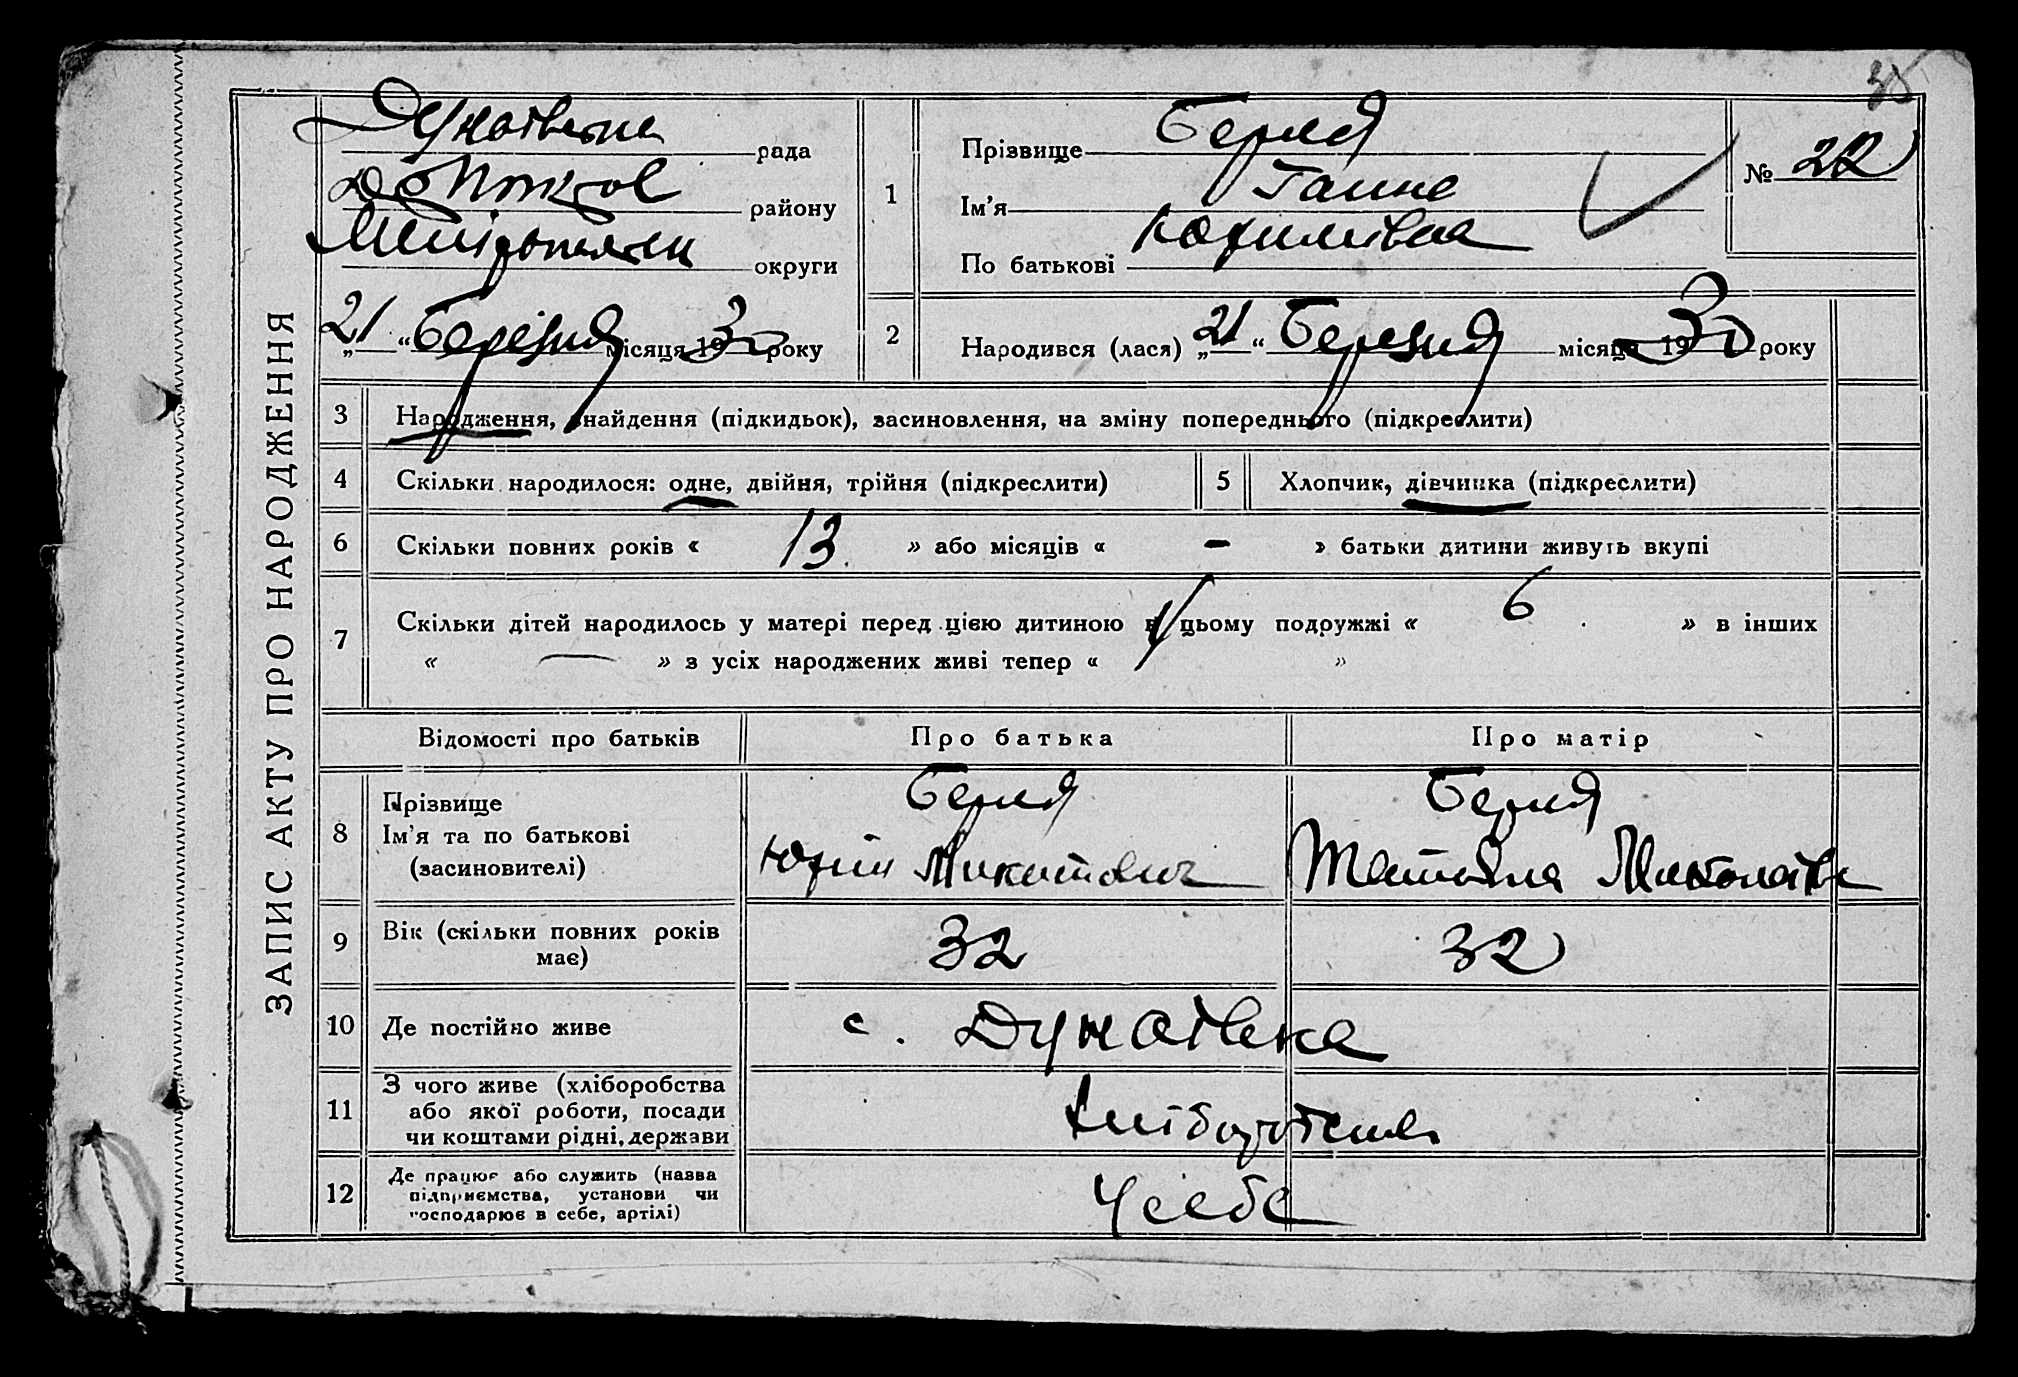 35
ЗАПИС АКТУ ПРО НАРОДЖЕННЯ
рада
району
округи
„21“ Березня місяця 1930 року
1
Прізвище
Ім’я Ганна
По батькові
№ 22
2
Народився (лася) „21“ Березня місяця 1930 року
3 Народження, знайдення (підкидьок), засиновлення, на зміну попереднього (підкреслити)
4 Скільки народилося: одне, двійня, трійня (підкреслити)
5 Хлопчик, дівчинка (підкреслити)
6 Скільки повних років « 13 » або місяців « - » батьки дитини живуть вкупі
7 Скільки дітей народилось у матері перед цією дитиною в цьому подружжі « 6 » в інших
« — » з усіх народжених живі тепер « »
Відомості про батьків Про батька Про матір
8
Прізвище
Ім’я та по батькові
(засиновителі)
Юрій Микитович
Татьяна
9 Вік (скільки повних років
має)
32 32
10 Де постійно живе с. Дунаївка
11
З чого живе (хліборобства
або якої роботи, посади
чи коштами рідні, держави
12
Де працює або служить (назва
підприємства, установи чи
господарює в себе, артілі)
У себе